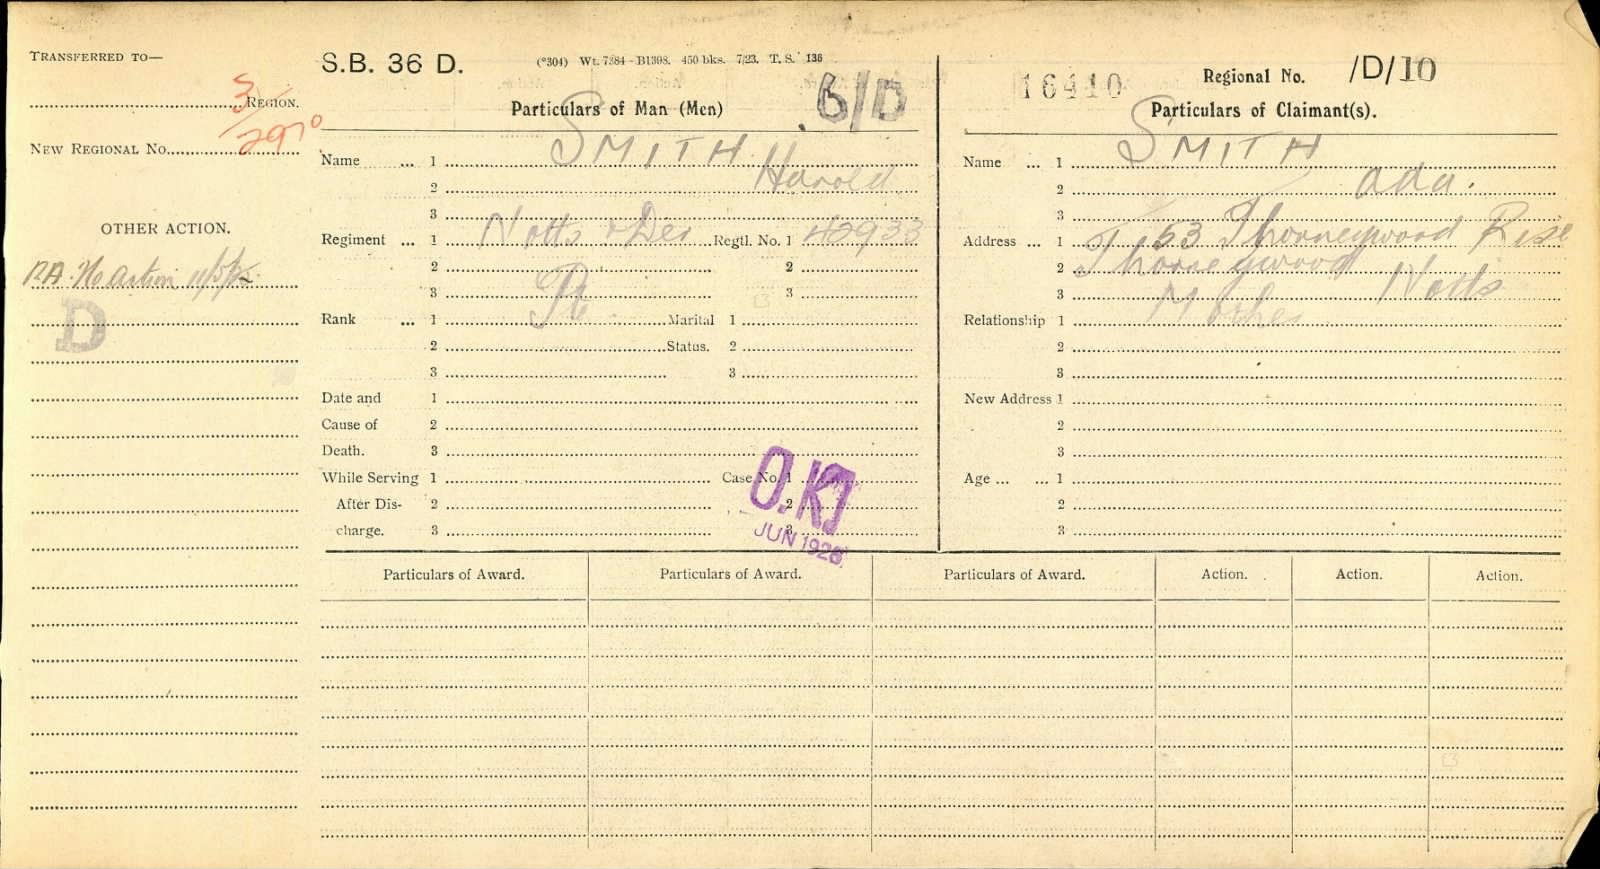 TRANSFERRED TO—
3 REGION.
/2970
NEW REGIONAL No.
OTHER ACTION.
RA. No action 11/5/25
D
S.B. 36 D.
(*304) Wt. 7284-B1398. 450 bks. 7/23. T. S. 136
Particulars of Man (Men)
6/D
Name ... 1 SMITH
2 Harold
3
Regiment ... 1 Notts & Der Regtl. No. 1 40933
2 2
3 3
Rank ... 1 Pte. Marital 1
2 Status. 2
3 3
Date and 1
Cause of 2
Death. 3
While Serving 1 Case No. 1
After Dis- 2 2
charge. 3 3
O.K
JUN 1926
16410 Regional No. /D/10
Particulars of Claimant(s).
Name ... 1 SMITH
2 Ada.
3
Address ... 1 53 Thorneywood Rise
2 Thorneywood
3 Notts
Relationship 1 Mother
2
3
New Address 1
2
3
Age ... ... 1
2
3
Particulars of Award. Particulars of Award. Particulars of Award. Action. Action. Action.